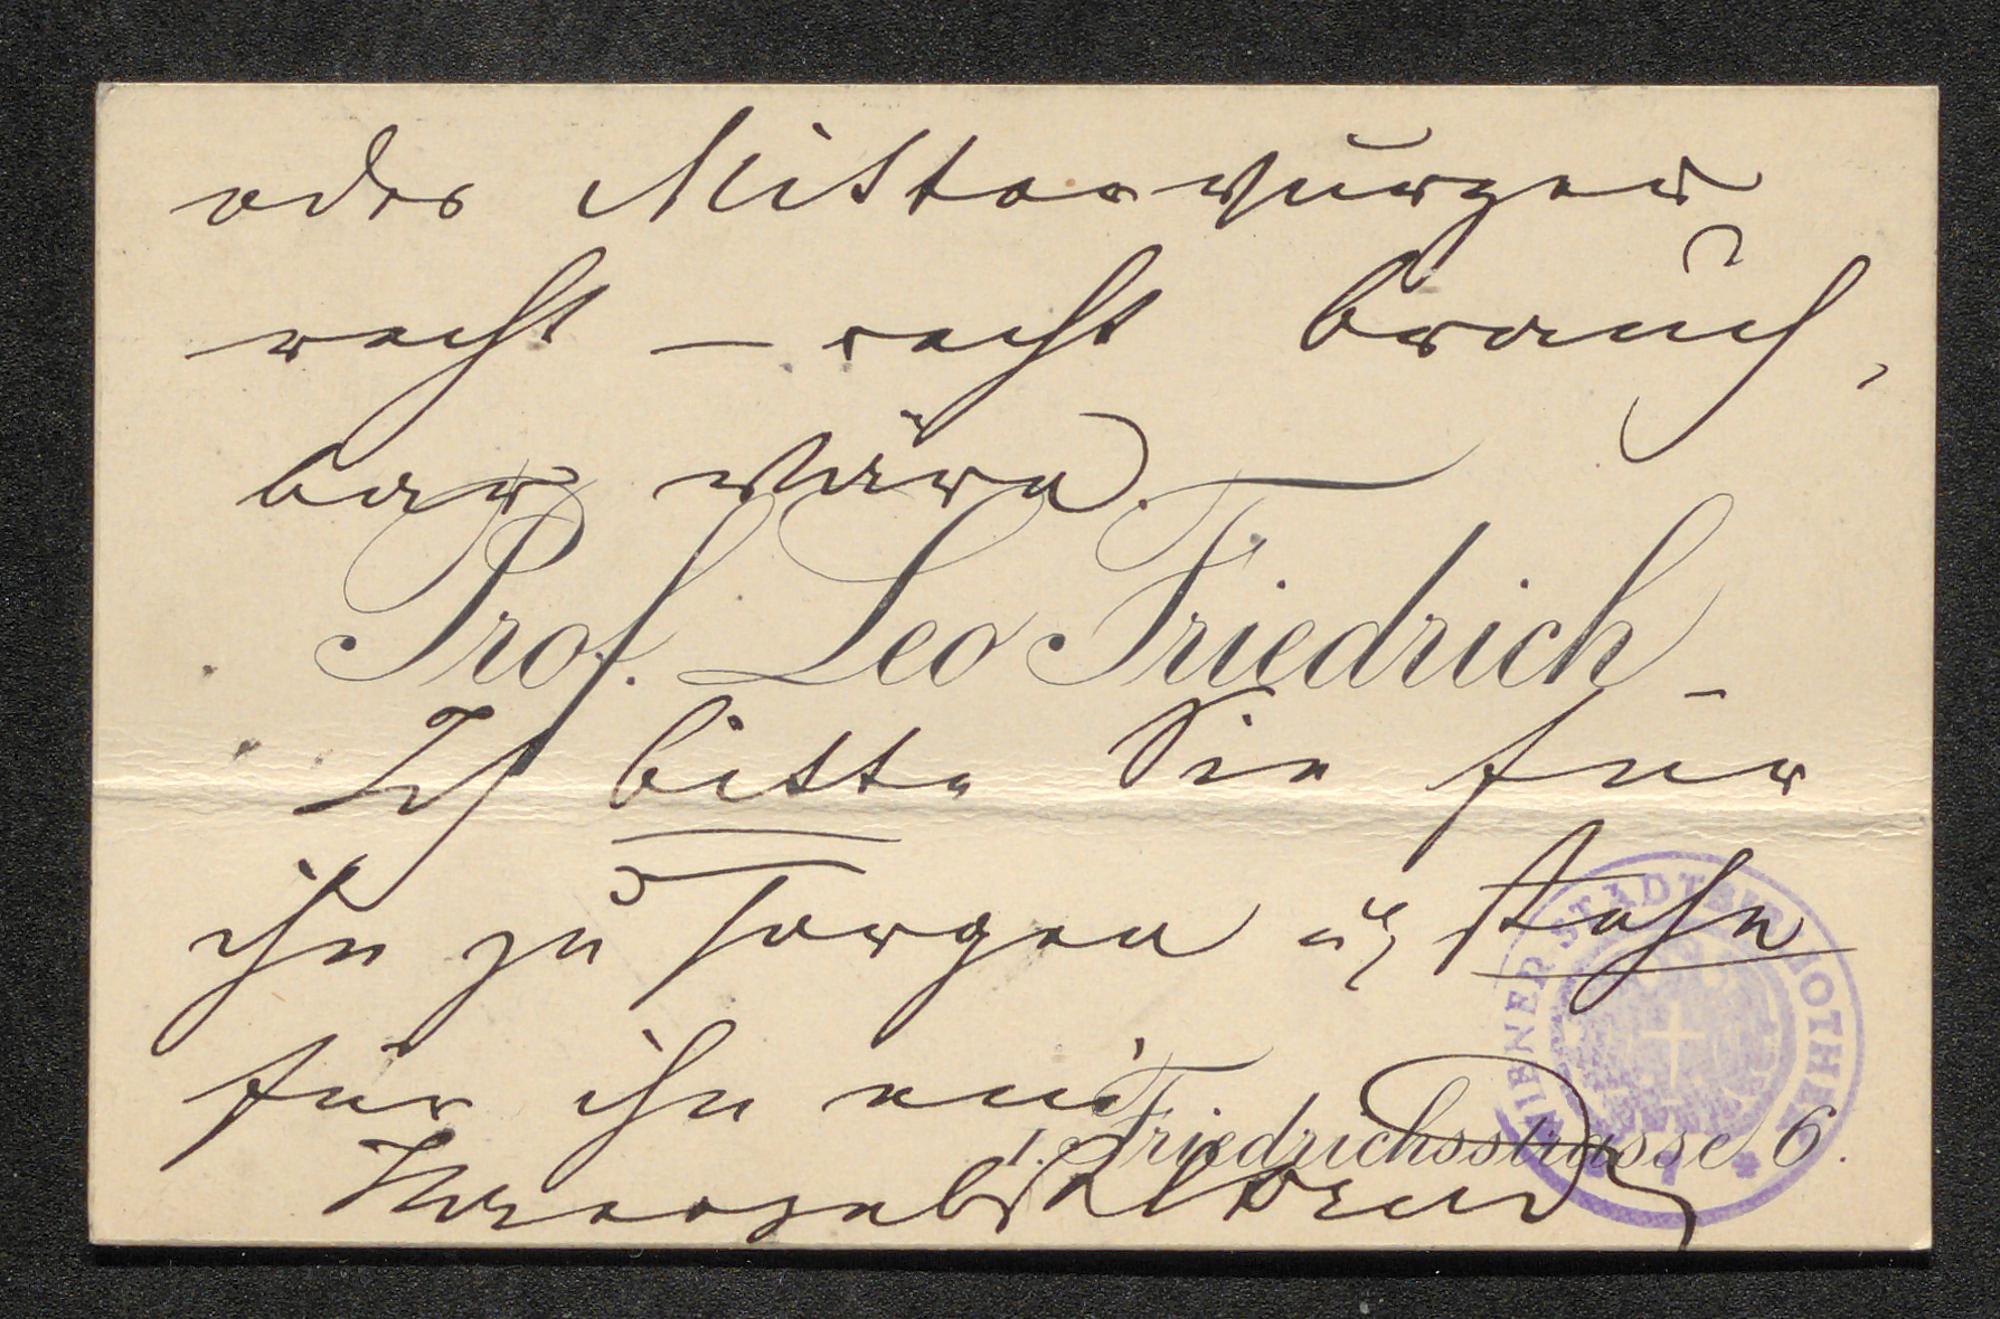 oder Mitterwurzer
recht – recht brauch,
bar wäre.
Prof. Leo Friedrich
Ich bitte Sie für
ihn zu sorgen u stehe
für ihn ein
I. Friedrichsstrasse 6.
WIENER STÄDT. BIBLIOTHEK